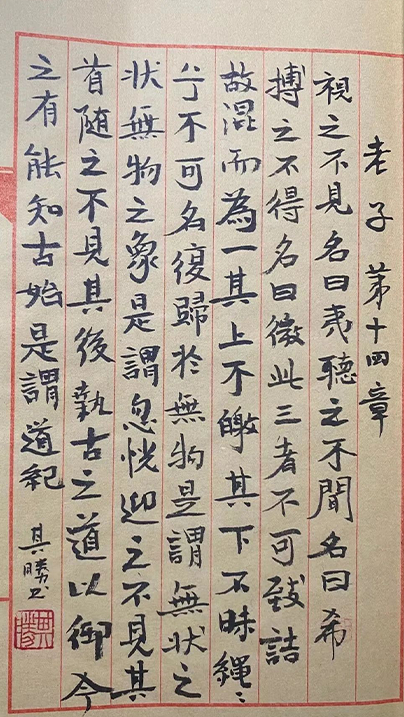 老子 苐十四章
視之不見名曰夷聽之不聞名曰希
搏之不得名曰微此三者不可致詰
故混而為一其上不皦其下不昧繩〻
兮不可名復歸於無物是謂無状之
状無物之象是謂忽恍迎之不見其
首随之不見其後執古之道以御今
之有能知古始是謂道紀
其勝书